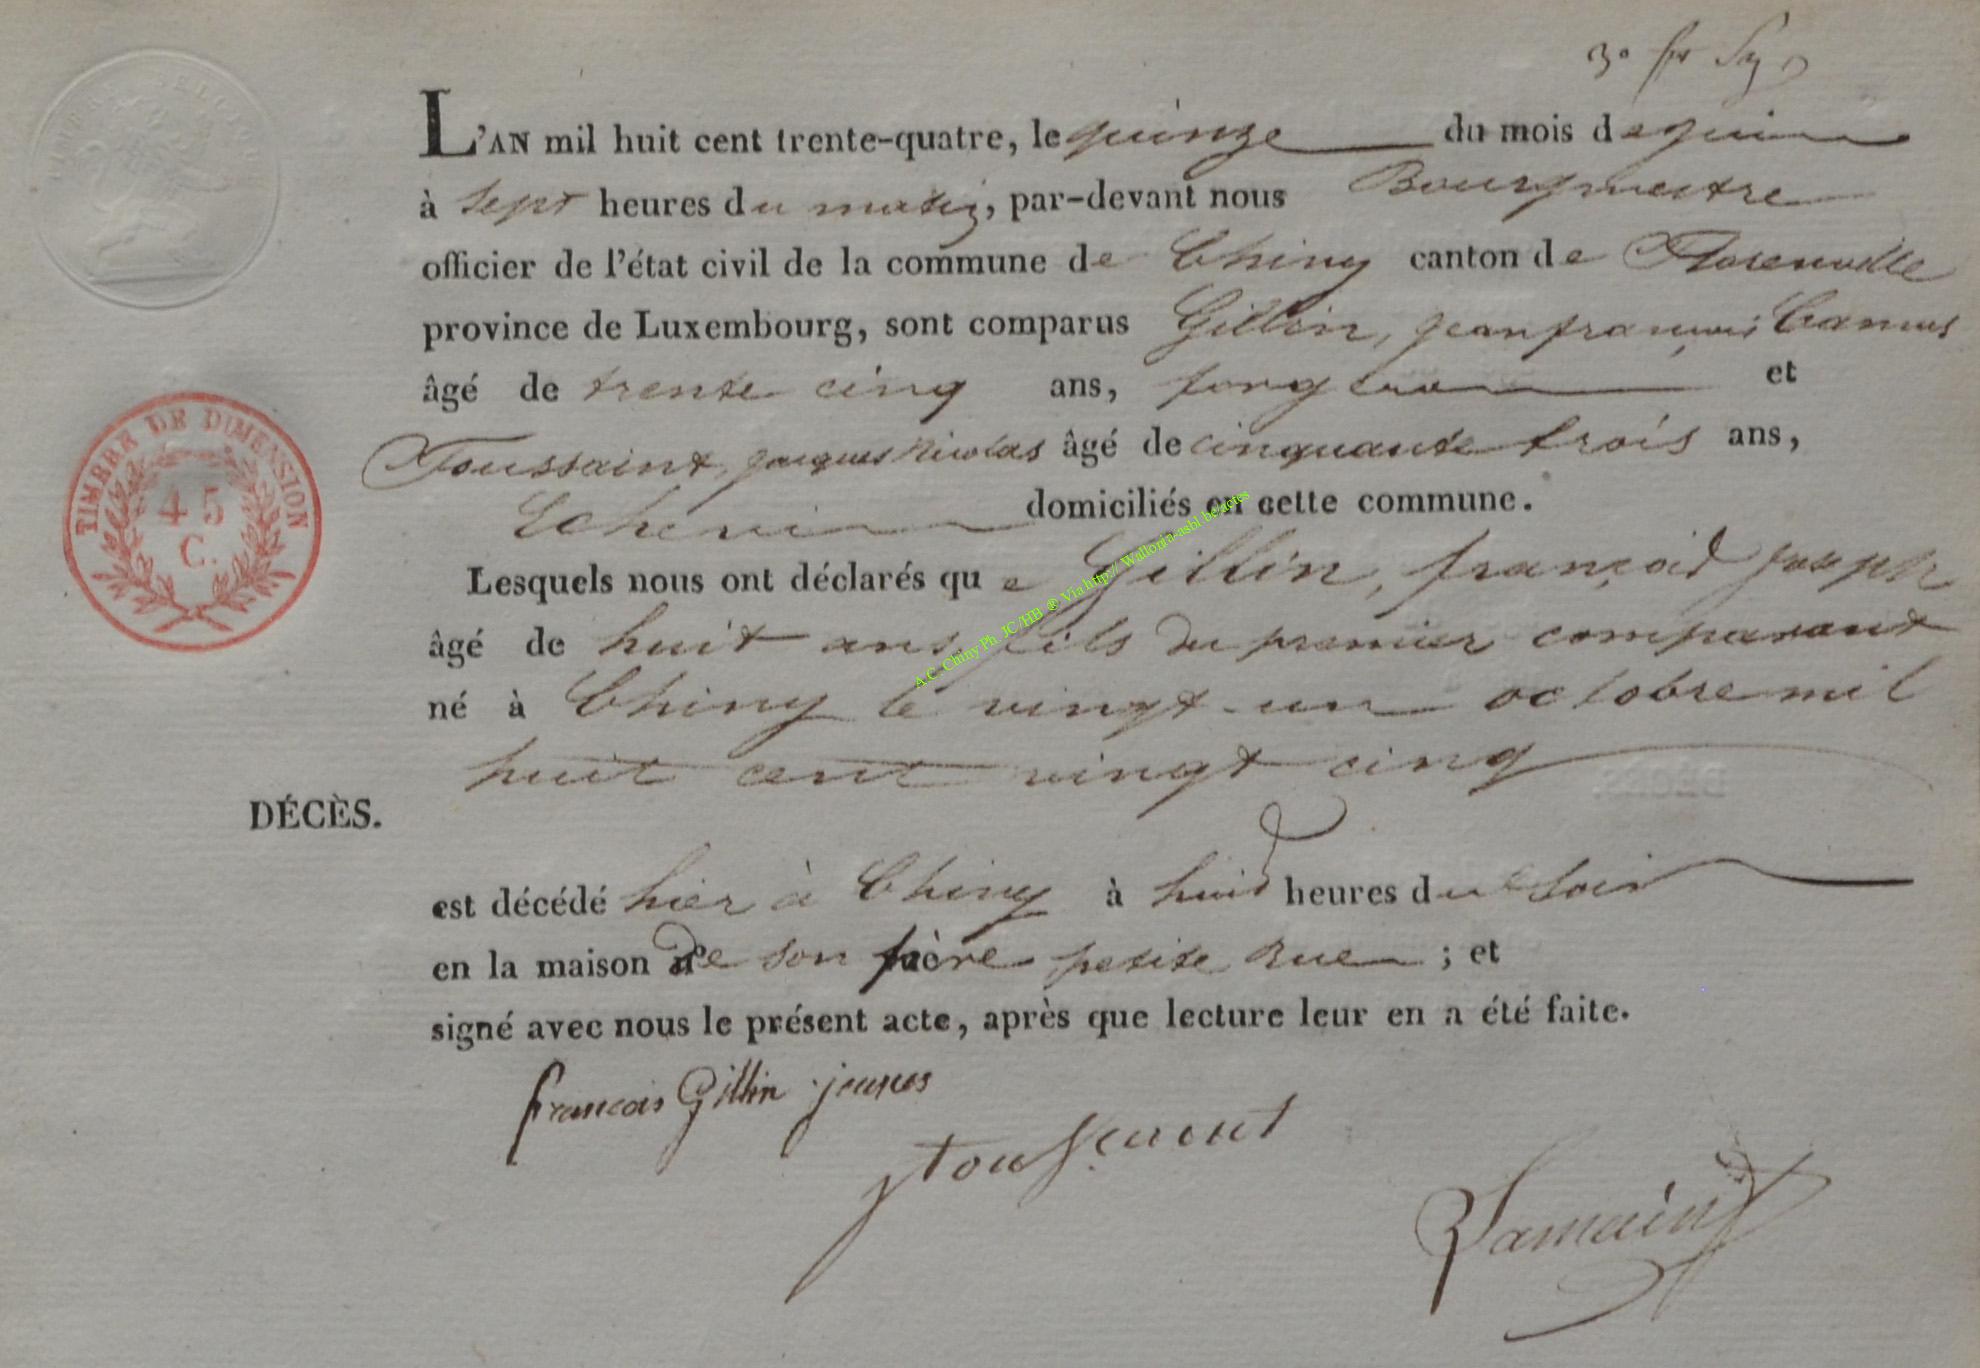 L'AN mil huit cent trente-quatre, le quinze du mois de juin
à sept heures du matin, par-devant nous Bourgmestre
officier de l'état civil de la commune de Chiny canton de Florenville
province de Luxembourg, sont comparus Gillin, jean françois Camus
âgé de trente cinq ans, forgeron et
Toussaint, jacques Nicolas âgé de cinquante trois ans,
Echevin domiciliés en cette commune.
Lesquels nous ont déclarés que Gillin, françois joseph
âgé de huit ans, fils du premier comparant
né à Chiny le vingt-un octobre mil
huit cent vingt cinq
DÉCÈS.
est décédé hier à Chiny à huit heures du soir
en la maison de son père petite Rue ; et
signé avec nous le présent acte, après que lecture leur en a été faite.
francois Gillin jeunes
TIMBRE DE DIMENSION
45
C.
A.C. Chiny Ph. JC/HB ® Via http:// Wallonia-asbl.be/actes